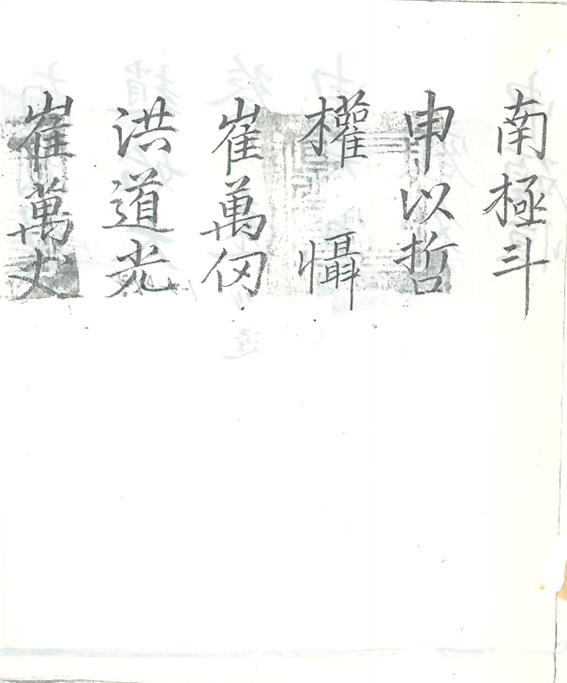 南極斗
申以哲
權 懾
崔萬仞
洪道光
崔萬丈